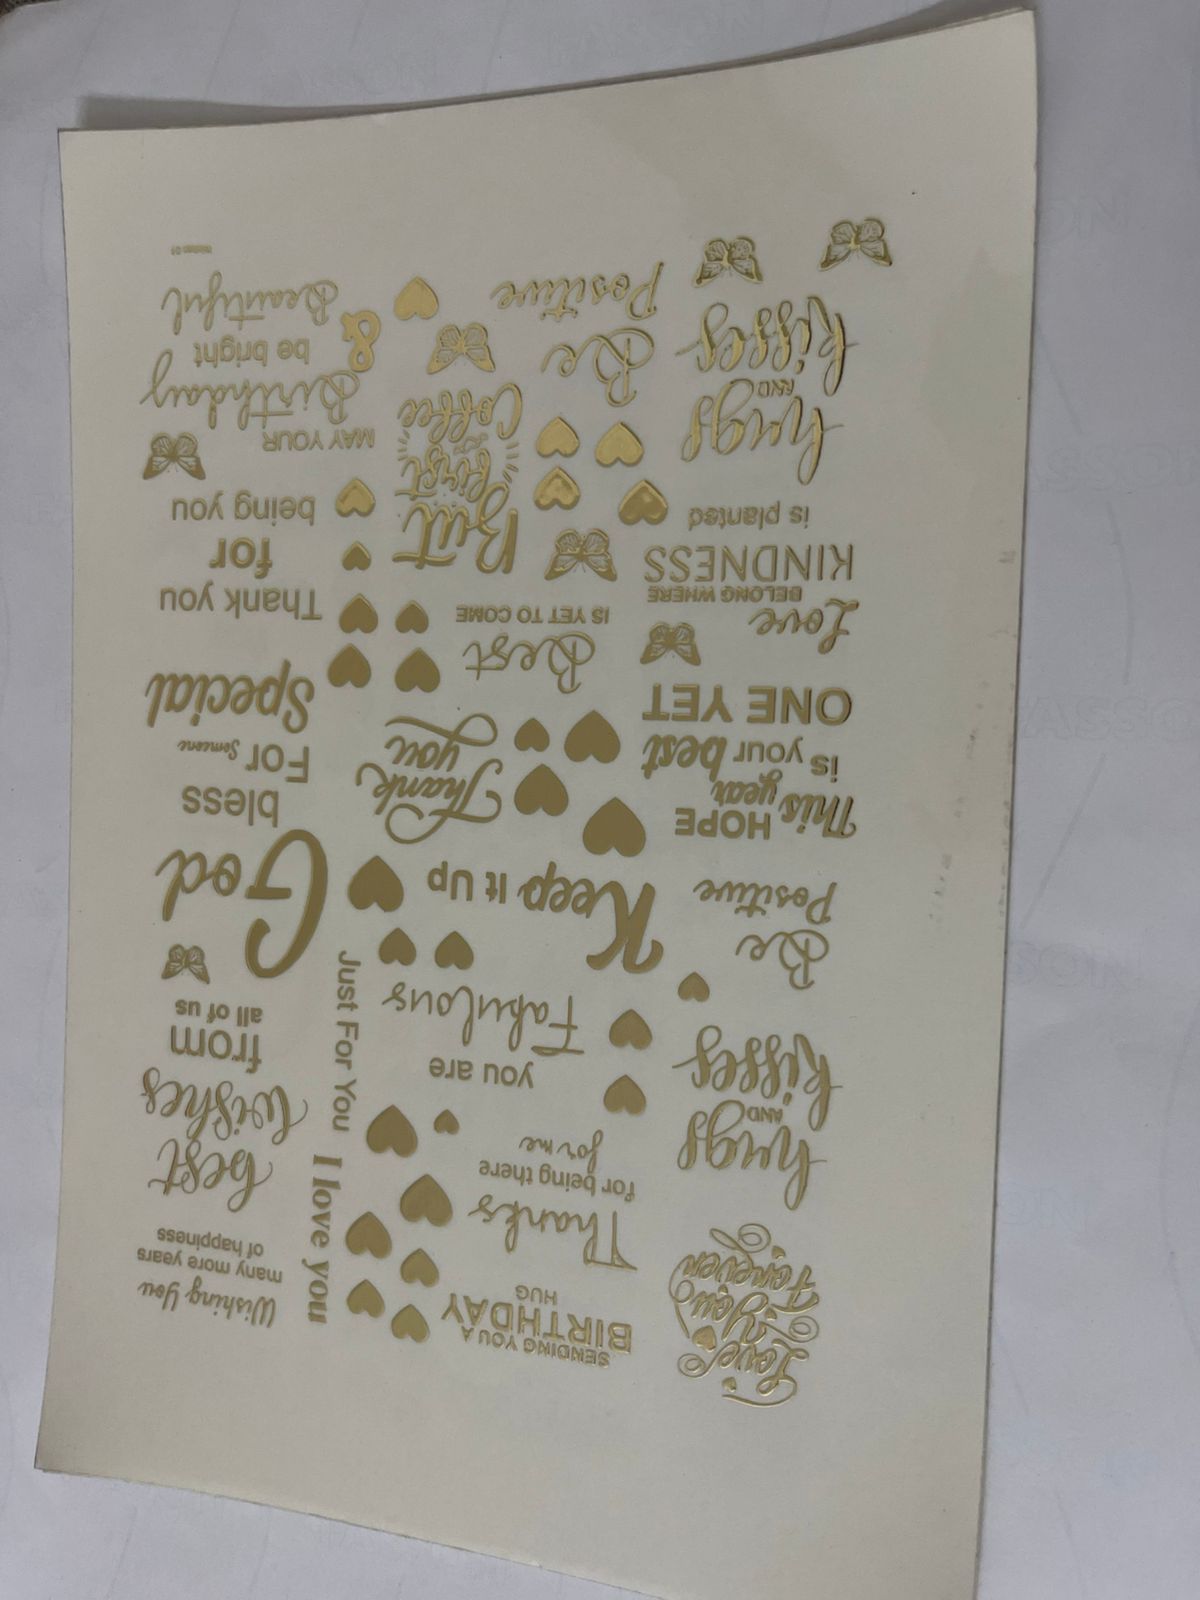 Love
You
Forever
SENDING YOU A
BIRTHDAY
HUG
Wishing You
many more years
of happiness
hugs
AND
kisses
Thanks
for being there
for me
I love you
best
wishes
from
all of us
you are
Fabulous
Just For You
Be
Positive
Keep It Up
God
bless
This HOPE
year
is your best
ONE YET
Thank
you
For Someone
Special
Love
BELONG WHERE
KINDNESS
is planted
Best
IS YET TO COME
Thank you
for
being you
hugs
AND
kisses
But
first
Coffee
MAY YOUR
Birthday
be bright
&
Beautiful
Be
Positive